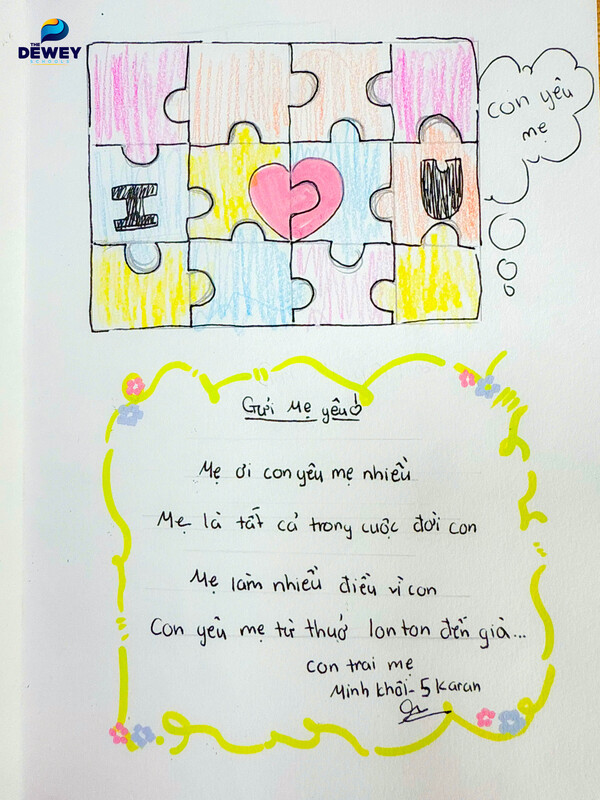 THE
DEWEY
SCHOOLS
con yêu
mẹ
I U
Gửi Mẹ yêu
Mẹ ơi con yêu mẹ nhiều
Mẹ là tất cả trong cuộc đời con
Mẹ làm nhiều điều vì con
Con yêu mẹ từ thuở lon ton đến già...
con trai mẹ
Minh Khôi - 5 Karan